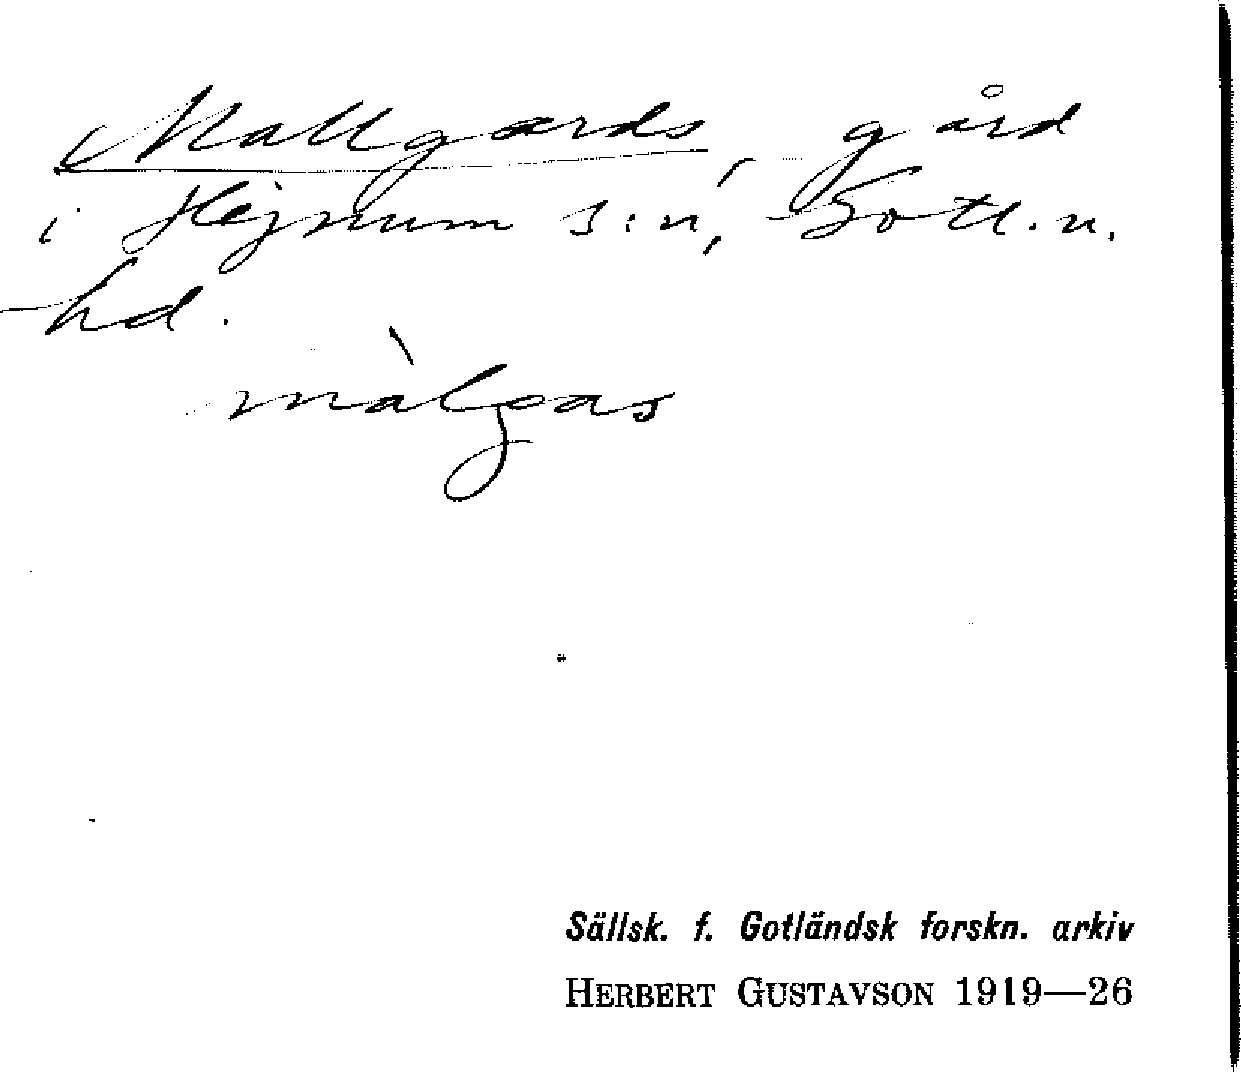 Mallgards, gård
i Hejnum s:n, Gotl. n.
hd.
màlgas
Sällsk. f. Gotländsk forskn. arkiv
HERBERT GUSTAVSON 1919—26